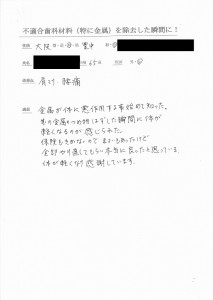 不適合歯科材料（特に金属）を除去した瞬間に！
大阪 豊中
65
肩こり 腰痛
金属が体に悪作用する事始めて知った。
歯の金属のつめ物はずした瞬間に体が
軽くなるのが感じられた。
保険もきかないので まよいもあったけど
全部やり直してもらい本当に良かったと思っている。
体が軽くなり感謝しています。